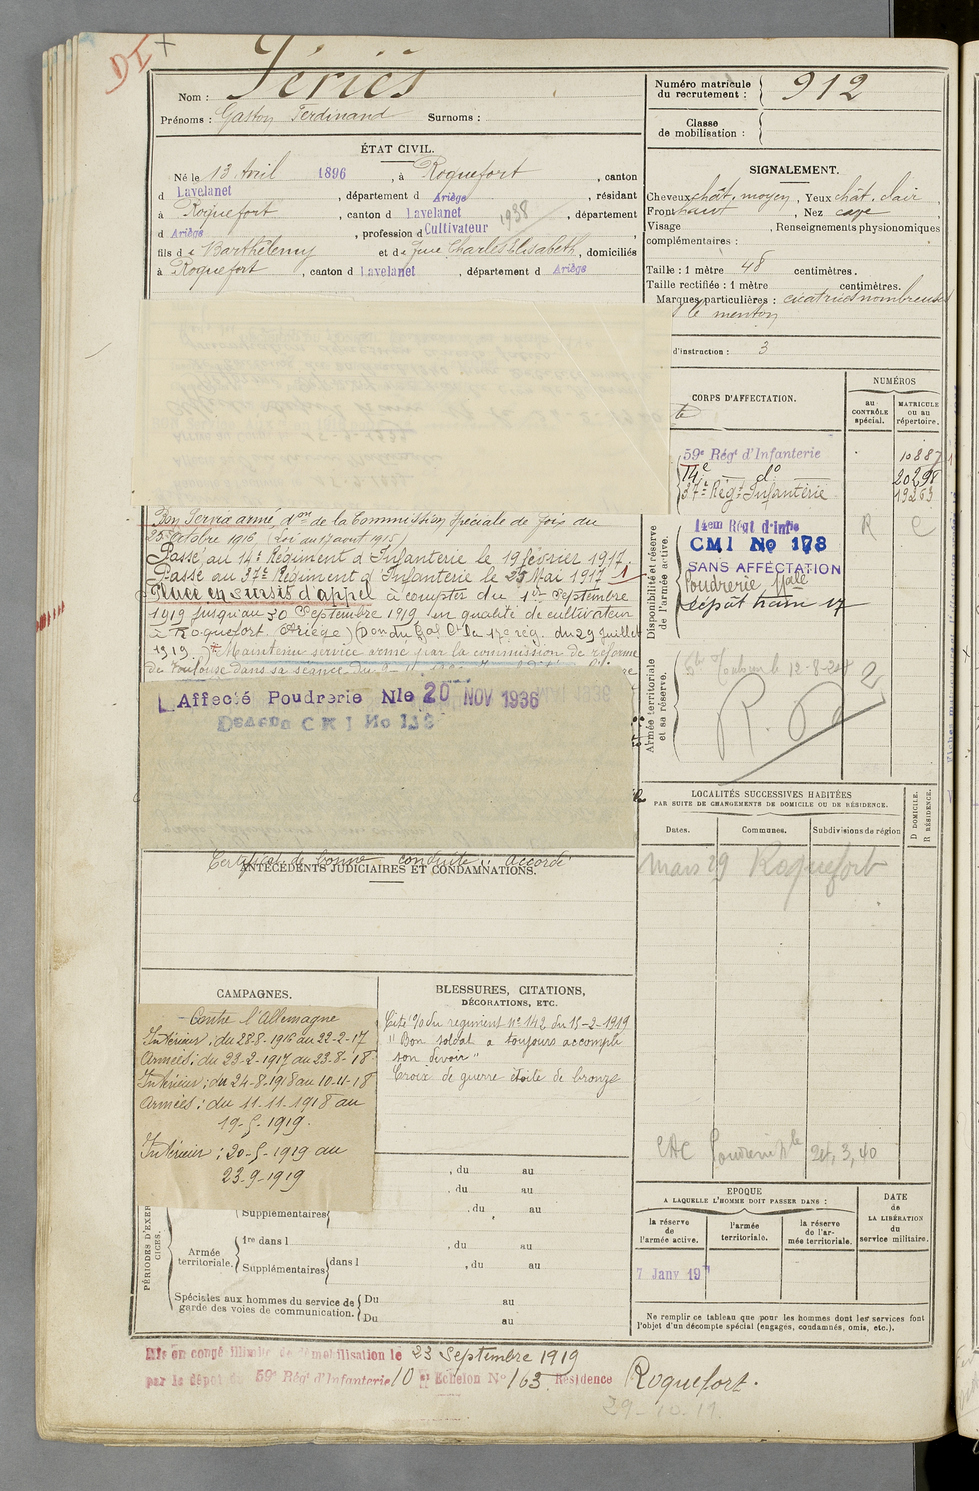 DI +
Nom : Sériés
Prénoms : Gaston Ferdinand Surnoms :
Numéro matricule du recrutement : 912
Classe de mobilisation :
ÉTAT CIVIL.
Né le 13 Avril 1896, à Roquefort, canton
d Lavelanet, département d Ariège, résidant
à Roquefort, canton d Lavelanet, département
d Ariège, profession d Cultivateur 1938
fils de Barthélemy et de Charles Elisabeth, domiciliés
à Roquefort, canton d Lavelanet, département d Ariège
SIGNALEMENT.
Cheveux chât. moyen, Yeux chât. clair,
Front haut, Nez cave
Visage , Renseignements physionomiques
complémentaires :
Taille : 1 mètre 48 centimètres.
Taille rectifiée : 1 mètre centimètres.
Marques particulières : cicatrices nombreuses
le menton
d'instruction : 3
CORPS D'AFFECTATION.
NUMÉROS
au CONTRÔLE spécial.
MATRICULE ou au répertoire.
59e Régt d'Infanterie 10887
14e do 20298
37e Régt Infanterie 19263
Disponibilité et réserve de l'armée active.
14em Régt d'Infie
CMI No 178
SANS AFFECTATION
Poudrerie Nale
Dépôt train 17
Armée territoriale et sa réserve.
Bon Service armé, don de la Commission spéciale de Foix du
25 Octobre 1916 (Loi du 17 aout 1915)
Passé au 14e Régiment d'Infanterie le 19 février 1917.
Passé au 37e Régiment d'Infanterie le 25 Mai 1917
Placé en sursis d'appel à compter du 1er Septembre
1919 jusqu'au 30 Septembre 1919 en qualité de cultivateur
à Roquefort (Ariège) (Don du Gal Ct la 17e rég. du 29 Juillet
1919.) Maintenu service armé par la commission de réforme
de Toulouse dans sa séance du
Affecté Poudrerie Nle 20 NOV 1936
CMI No
Certificat de bonne conduite : accordé
ANTÉCÉDENTS JUDICIAIRES ET CONDAMNATIONS.
LOCALITÉS SUCCESSIVES HABITÉES
PAR SUITE DE CHANGEMENTS DE DOMICILE OU DE RÉSIDENCE.
Dates. Communes. Subdivisions de région
D DOMICILE.
R RÉSIDENCE.
Mars 29 Roquefort
24, 3, 40
CAMPAGNES.
Contre l'Allemagne
Intérieur : du 28-8-1916 au 22-2-17
Armées : du 23-2-1917 au 23-8-18
Intérieur : du 24-8-1918 au 10-11-18
Armées : du 11-11-1918 au
19-5-1919.
Intérieur : 20-5-1919 au
23-9-1919
BLESSURES, CITATIONS,
DÉCORATIONS, ETC.
Cité % du regiment n° 142 du 15-2-1919
" Bon soldat a toujours accompli
son devoir "
Croix de guerre étoile de bronze
, du au
, du au
PÉRIODES D'EXERCICES.
Supplémentaires , du au
Armée territoriale.
1re dans l , du au
Supplémentaires dans l , du au
Spéciales aux hommes du service de garde des voies de communication.
Du au
Du au
EPOQUE
A LAQUELLE L'HOMME DOIT PASSER DANS :
la réserve de l'armée active.
l'armée territoriale.
la réserve de l'armée territoriale.
DATE de LA LIBÉRATION du service militaire.
7 Janv 19
Ne remplir ce tableau que pour les hommes dont les services font
l'objet d'un décompte spécial (engagés, condamnés, omis, etc.).
Mis en congé illimité de démobilisation le 23 Septembre 1919
par le dépôt du 59e Régt d'Infanterie 10 et Echelon N° 163 Résidence Roquefort.
29-10-19.